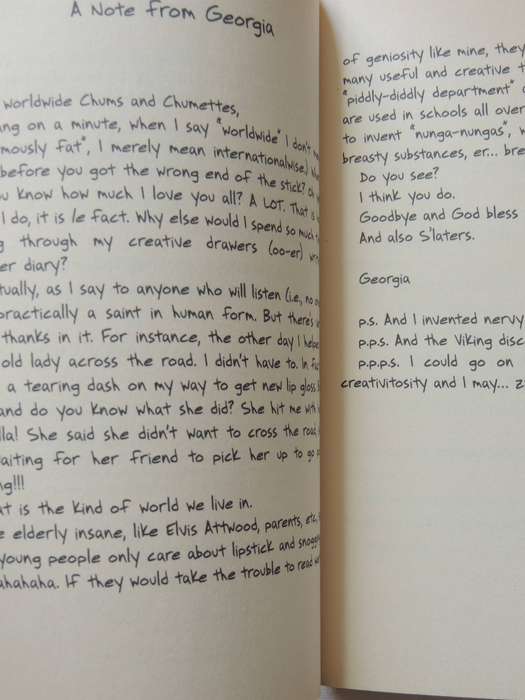 A Note from Georgia
worldwide Chums and Chumettes,
on a minute, when I say "worldwide" I don't
fat", I merely mean internationalwise.)
before you got the wrong end of the stick?
know how much I love you all? A LOT. That is
I do, it is le fact. Why else would I spend so much
through my creative drawers (oo-er)
diary?
as I say to anyone who will listen (i.e., no
practically a saint in human form. But there's
thanks in it. For instance, the other day I
old lady across the road. I didn't have to. In
a tearing dash on my way to get new lip gloss
and do you know what she did? She hit me with
She said she didn't want to cross the road
for her friend to pick her up to go
is the kind of world we live in.
elderly insane, like Elvis Attwood, parents, etc.
young people only care about lipstick and
If they would take the trouble to read
of geniosity like mine, they
many useful and creative
"piddly-diddly department"
are used in schools all over
to invent "nunga-nungas",
breasty substances, er...
Do you see?
I think you do.
Goodbye and God bless
And also S'laters.
Georgia
p.s. And I invented nervy
p.p.s. And the Viking
p.p.p.s. I could go on
creativitosity and I may...